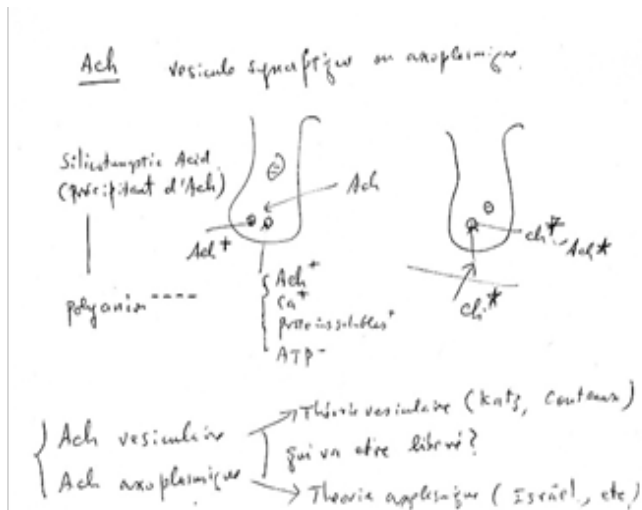 Ach vesicule synaptique ou axoplasmique
Silicotungstic Acid
(précipitant d'Ach)
Ach
Ach+
polyanion ----
Ach+
Ca+
Proteins solubles+
ATP-
ch*
Ach*
ch*
Ach vesiculaire
Ach axoplasmique
Théorie vesiculaire (Katz, Couteaux)
qui va etre liberé?
Theorie axoplasmique (Israël, etc)